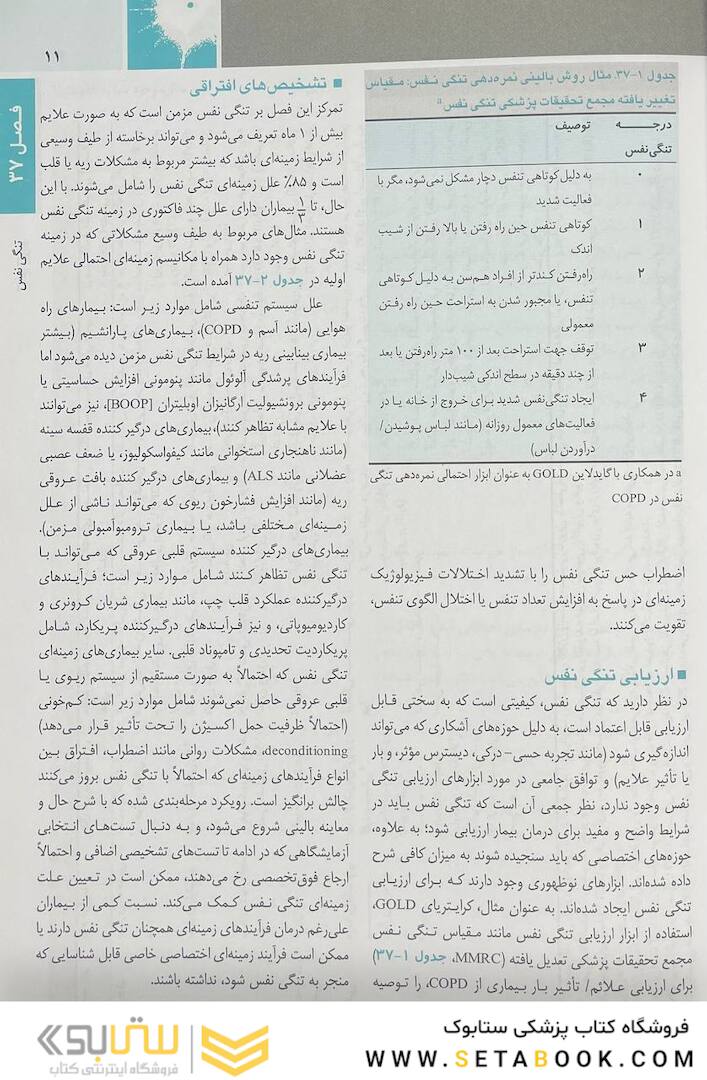 ۱۱
فصل ۳۷
تنگی نفس
جدول ۱-۳۷. مثال روش بالینی نمره‌دهی تنگی نفس: مقیاس
تغییر یافته مجمع تحقیقات پزشکی تنگی نفس.a
درجه توصیف
تنگی‌نفس
۰ به دلیل کوتاهی تنفس دچار مشکل نمی‌شود، مگر با
فعالیت شدید
۱ کوتاهی تنفس حین راه رفتن یا بالا رفتن از شیب
اندک
۲ راه‌رفتن کندتر از افراد هم‌سن به دلیل کوتاهی
تنفس، یا مجبور شدن به استراحت حین راه رفتن
معمولی
۳ توقف جهت استراحت بعد از ۱۰۰ متر راه‌رفتن یا بعد
از چند دقیقه در سطح اندکی شیب‌دار
۴ ایجاد تنگی‌نفس شدید برای خروج از خانه یا در
فعالیت‌های معمول روزانه (مانند لباس پوشیدن/
درآوردن لباس)
a در همکاری با گایدلاین GOLD به عنوان ابزار احتمالی نمره‌دهی تنگی
نفس در COPD
اضطراب حس تنگی نفس را با تشدید اختلالات فیزیولوژیک
زمینه‌ای در پاسخ به افزایش تعداد تنفس یا اختلال الگوی تنفس،
تقویت می‌کنند.
■ ارزیابی تنگی نفس
در نظر دارید که تنگی نفس، کیفیتی است که به سختی قابل
ارزیابی قابل اعتماد است، به دلیل حوزه‌های آشکاری که می‌تواند
اندازه‌گیری شود (مانند تجربه حسی-درکی، دیسترس مؤثر، و بار
یا تأثیر علایم) و توافق جامعی در مورد ابزارهای ارزیابی تنگی
نفس وجود ندارد، نظر جمعی آن است که تنگی نفس باید در
شرایط واضح و مفید برای درمان بیمار ارزیابی شود؛ به علاوه،
حوزه‌های اختصاصی که باید سنجیده شوند به میزان کافی شرح
داده شده‌اند. ابزارهای نوظهوری وجود دارند که برای ارزیابی
تنگی نفس ایجاد شده‌اند. به عنوان مثال، کرایتریای GOLD،
استفاده از ابزار ارزیابی تنگی نفس مانند مقیاس تنگی نفس
مجمع تحقیقات پزشکی تعدیل یافته (MMRC، جدول ۱-۳۷)
برای ارزیابی علائم/ تأثیر بار بیماری از COPD، را توصیه
■ تشخیص‌های افتراقی
تمرکز این فصل بر تنگی نفس مزمن است که به صورت علایم
بیش از ۱ ماه تعریف می‌شود و می‌تواند برخاسته از طیف وسیعی
از شرایط زمینه‌ای باشد که بیشتر مربوط به مشکلات ریه یا قلب
است و ۸۵٪ علل زمینه‌ای تنگی نفس را شامل می‌شوند. با این
حال، تا ۱/۳ بیماران دارای علل چند فاکتوری در زمینه تنگی نفس
هستند. مثال‌های مربوط به طیف وسیع مشکلاتی که در زمینه
تنگی نفس وجود دارد همراه با مکانیسم زمینه‌ای احتمالی علایم
اولیه در جدول ۲-۳۷ آمده است.
علل سیستم تنفسی شامل موارد زیر است: بیماری‌های راه
هوایی (مانند آسم و COPD)، بیماری‌های پارانشیم (بیشتر
بیماری بینابینی ریه در شرایط تنگی نفس مزمن دیده می‌شود اما
فرآیندهای پرشدگی آلوئول مانند پنومونی افزایش حساسیتی یا
پنومونی برونشیولیت ارگانیزان اوبلیتران [BOOP]، نیز می‌توانند
با علایم مشابه تظاهر کنند)، بیماری‌های درگیر کننده قفسه سینه
(مانند ناهنجاری استخوانی مانند کیفواسکولیوز، یا ضعف عصبی
عضلانی مانند ALS) و بیماری‌های درگیر کننده بافت عروقی
ریه (مانند افزایش فشارخون ریوی که می‌تواند ناشی از علل
زمینه‌ای مختلفی باشد، یا بیماری ترومبوآمبولی مزمن).
بیماری‌های درگیر کننده سیستم قلبی عروقی که می‌تواند با
تنگی نفس تظاهر کنند شامل موارد زیر است؛ فرآیندهای
درگیرکننده عملکرد قلب چپ، مانند بیماری شریان کرونری و
کاردیومیوپاتی، و نیز فرآیندهای درگیرکننده پریکارد، شامل
پریکاردیت تحدیدی و تامپوناد قلبی. سایر بیماری‌های زمینه‌ای
تنگی نفس که احتمالاً به صورت مستقیم از سیستم ریوی یا
قلبی عروقی حاصل نمی‌شوند شامل موارد زیر است: کم‌خونی
(احتمالاً ظرفیت حمل اکسیژن را تحت تأثیر قرار می‌دهد)
deconditioning، مشکلات روانی مانند اضطراب، افتراق بین
انواع فرآیندهای زمینه‌ای که احتمالاً با تنگی نفس بروز می‌کنند
چالش برانگیز است. رویکرد مرحله‌بندی شده که با شرح حال و
معاینه بالینی شروع می‌شود، و به دنبال تست‌های انتخابی
آزمایشگاهی که در ادامه تا تست‌های تشخیصی اضافی و احتمالاً
ارجاع فوق‌تخصصی رخ می‌دهند، ممکن است در تعیین علت
زمینه‌ای تنگی نفس کمک می‌کند. نسبت کمی از بیماران
علی‌رغم درمان فرآیندهای زمینه‌ای همچنان تنگی نفس دارند یا
ممکن است فرآیند زمینه‌ای اختصاصی خاصی قابل شناسایی که
منجر به تنگی نفس شود، نداشته باشند.
فروشگاه کتاب پزشکی ستابوک
WWW.SETABOOK.COM
ستابوک
فروشگاه اینترنتی کتاب